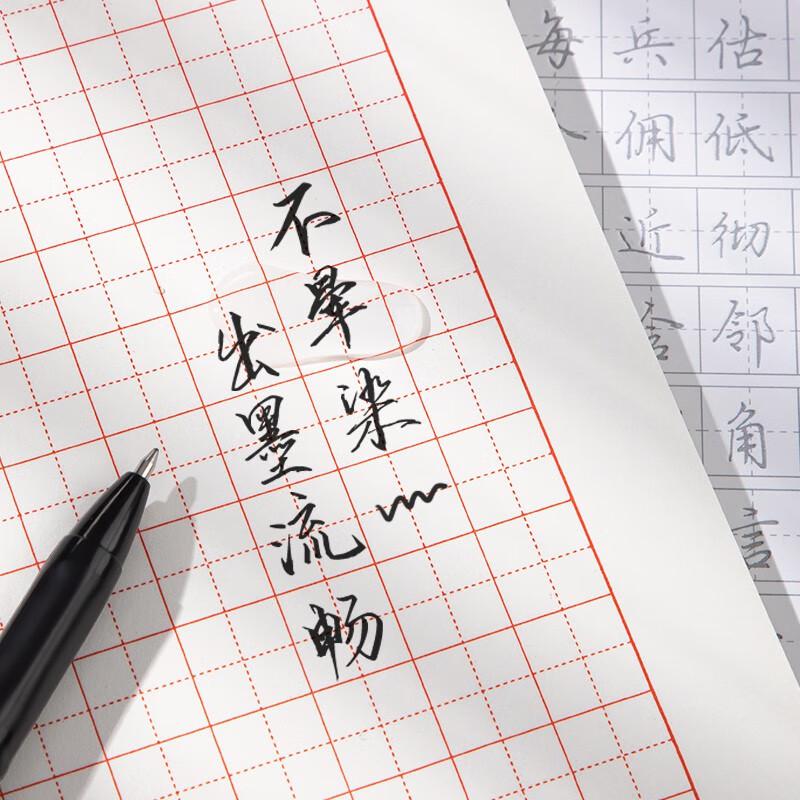 不晕染
出墨流畅
每兵估
佣低
近彻
邻
角
言